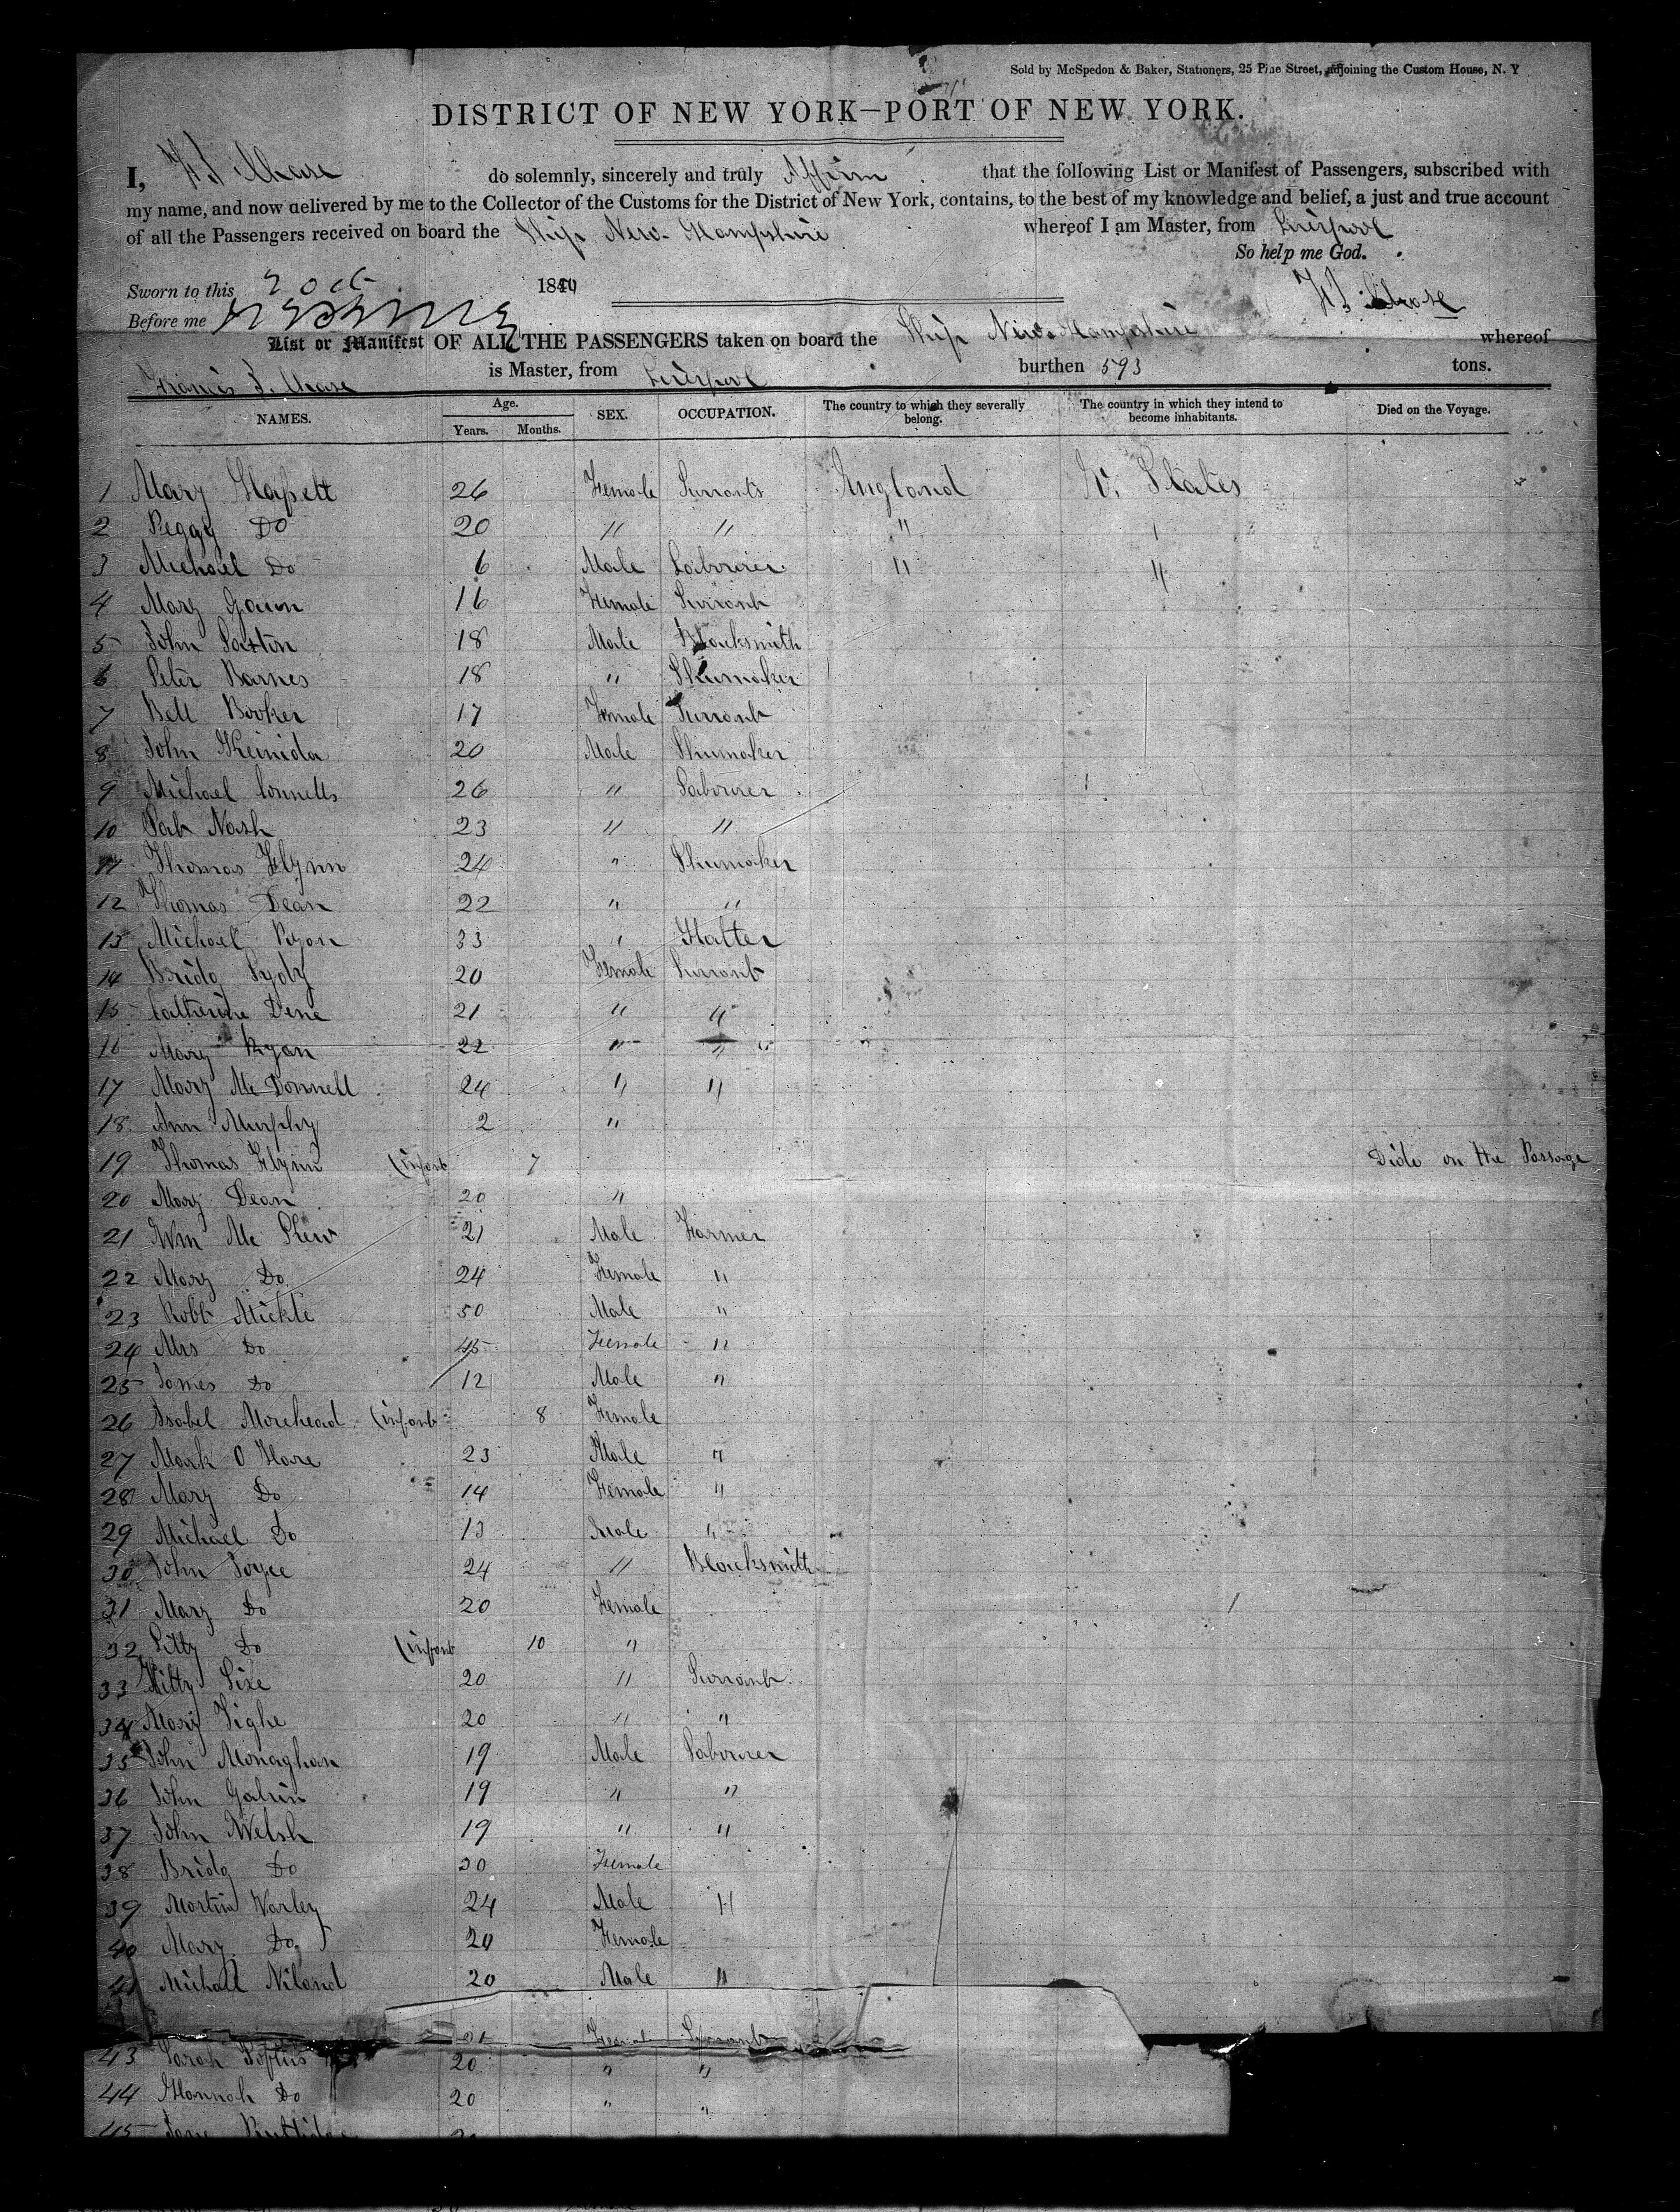 Sold by McSpedon & Baker, Stationers, 25 Pine Street, adjoining the Custom House, N. Y
DISTRICT OF NEW YORK—PORT OF NEW YORK.
I, do solemnly, sincerely and truly Affirm that the following List or Manifest of Passengers, subscribed with
my name, and now delivered by me to the Collector of the Customs for the District of New York, contains, to the best of my knowledge and belief, a just and true account
of all the Passengers received on board the Ship New-Hampshire whereof I am Master, from Liverpool
So help me God.
Sworn to this 2 Oct 184
Before me
List or Manifest OF ALL THE PASSENGERS taken on board the Ship New-Hampshire whereof
Francis is Master, from Liverpool burthen 593 tons.
NAMES. Age. Years. Months. SEX. OCCUPATION. The country to which they severally belong. The country in which they intend to become inhabitants. Died on the Voyage.
1 Mary 26 Female Survants England U. States
2 Peggy Do 20 " " "
3 Michael Do 6 Male Labourer " "
4 Mary 16 Female Survant
5 John 18 Male Blacksmith
6 Peter Barnes 18 " Shumaker
7 Bell Booker 17 Female Survant
8 John 20 Male Shumaker
9 Michael Connells 26 " Labourer
10 Pat Nash 23 " "
11 Thomas Flynn 24 " Shumaker
12 Thomas Dean 22 " "
13 Michael 33 " Hatter
14 Bridg 20 Female Survant
15 Catherine Dene 21 " "
16 Mary Ryan 22 " "
17 Mary McDonnell 24 " "
18 Ann Murphy 2 "
19 Thomas Flynn (infant 7 Dide on the Passage
20 Mary Dean 20 "
21 Wm Mc 21 Male Farmer
22 Mary Do 24 Female "
23 Robt Mickle 50 Male "
24 Mrs Do 45 Female "
25 James Do 12 Male "
26 Isabel Morehead (infant 8 Female
27 Mark O Hare 23 Male "
28 Mary Do 14 Female "
29 Michael Do 13 Male "
30 John Joyce 24 " Blacksmith
31 Mary Do 20 Female
32 Do (infant 10 "
33 Kitty 20 " Survant
34 Mary Tighe 20 " "
35 John Monaghan 19 Male Labourer
36 John 19 " "
37 John Welsh 19 " "
38 Bridg Do 20 Female
39 Martin Varley 24 Male "
40 Mary Do 20 Female
41 Michael Niland 20 Male "
Survant
43 Sarah Loftus 20 " "
44 Hannah Do 20 " "
45 Jane